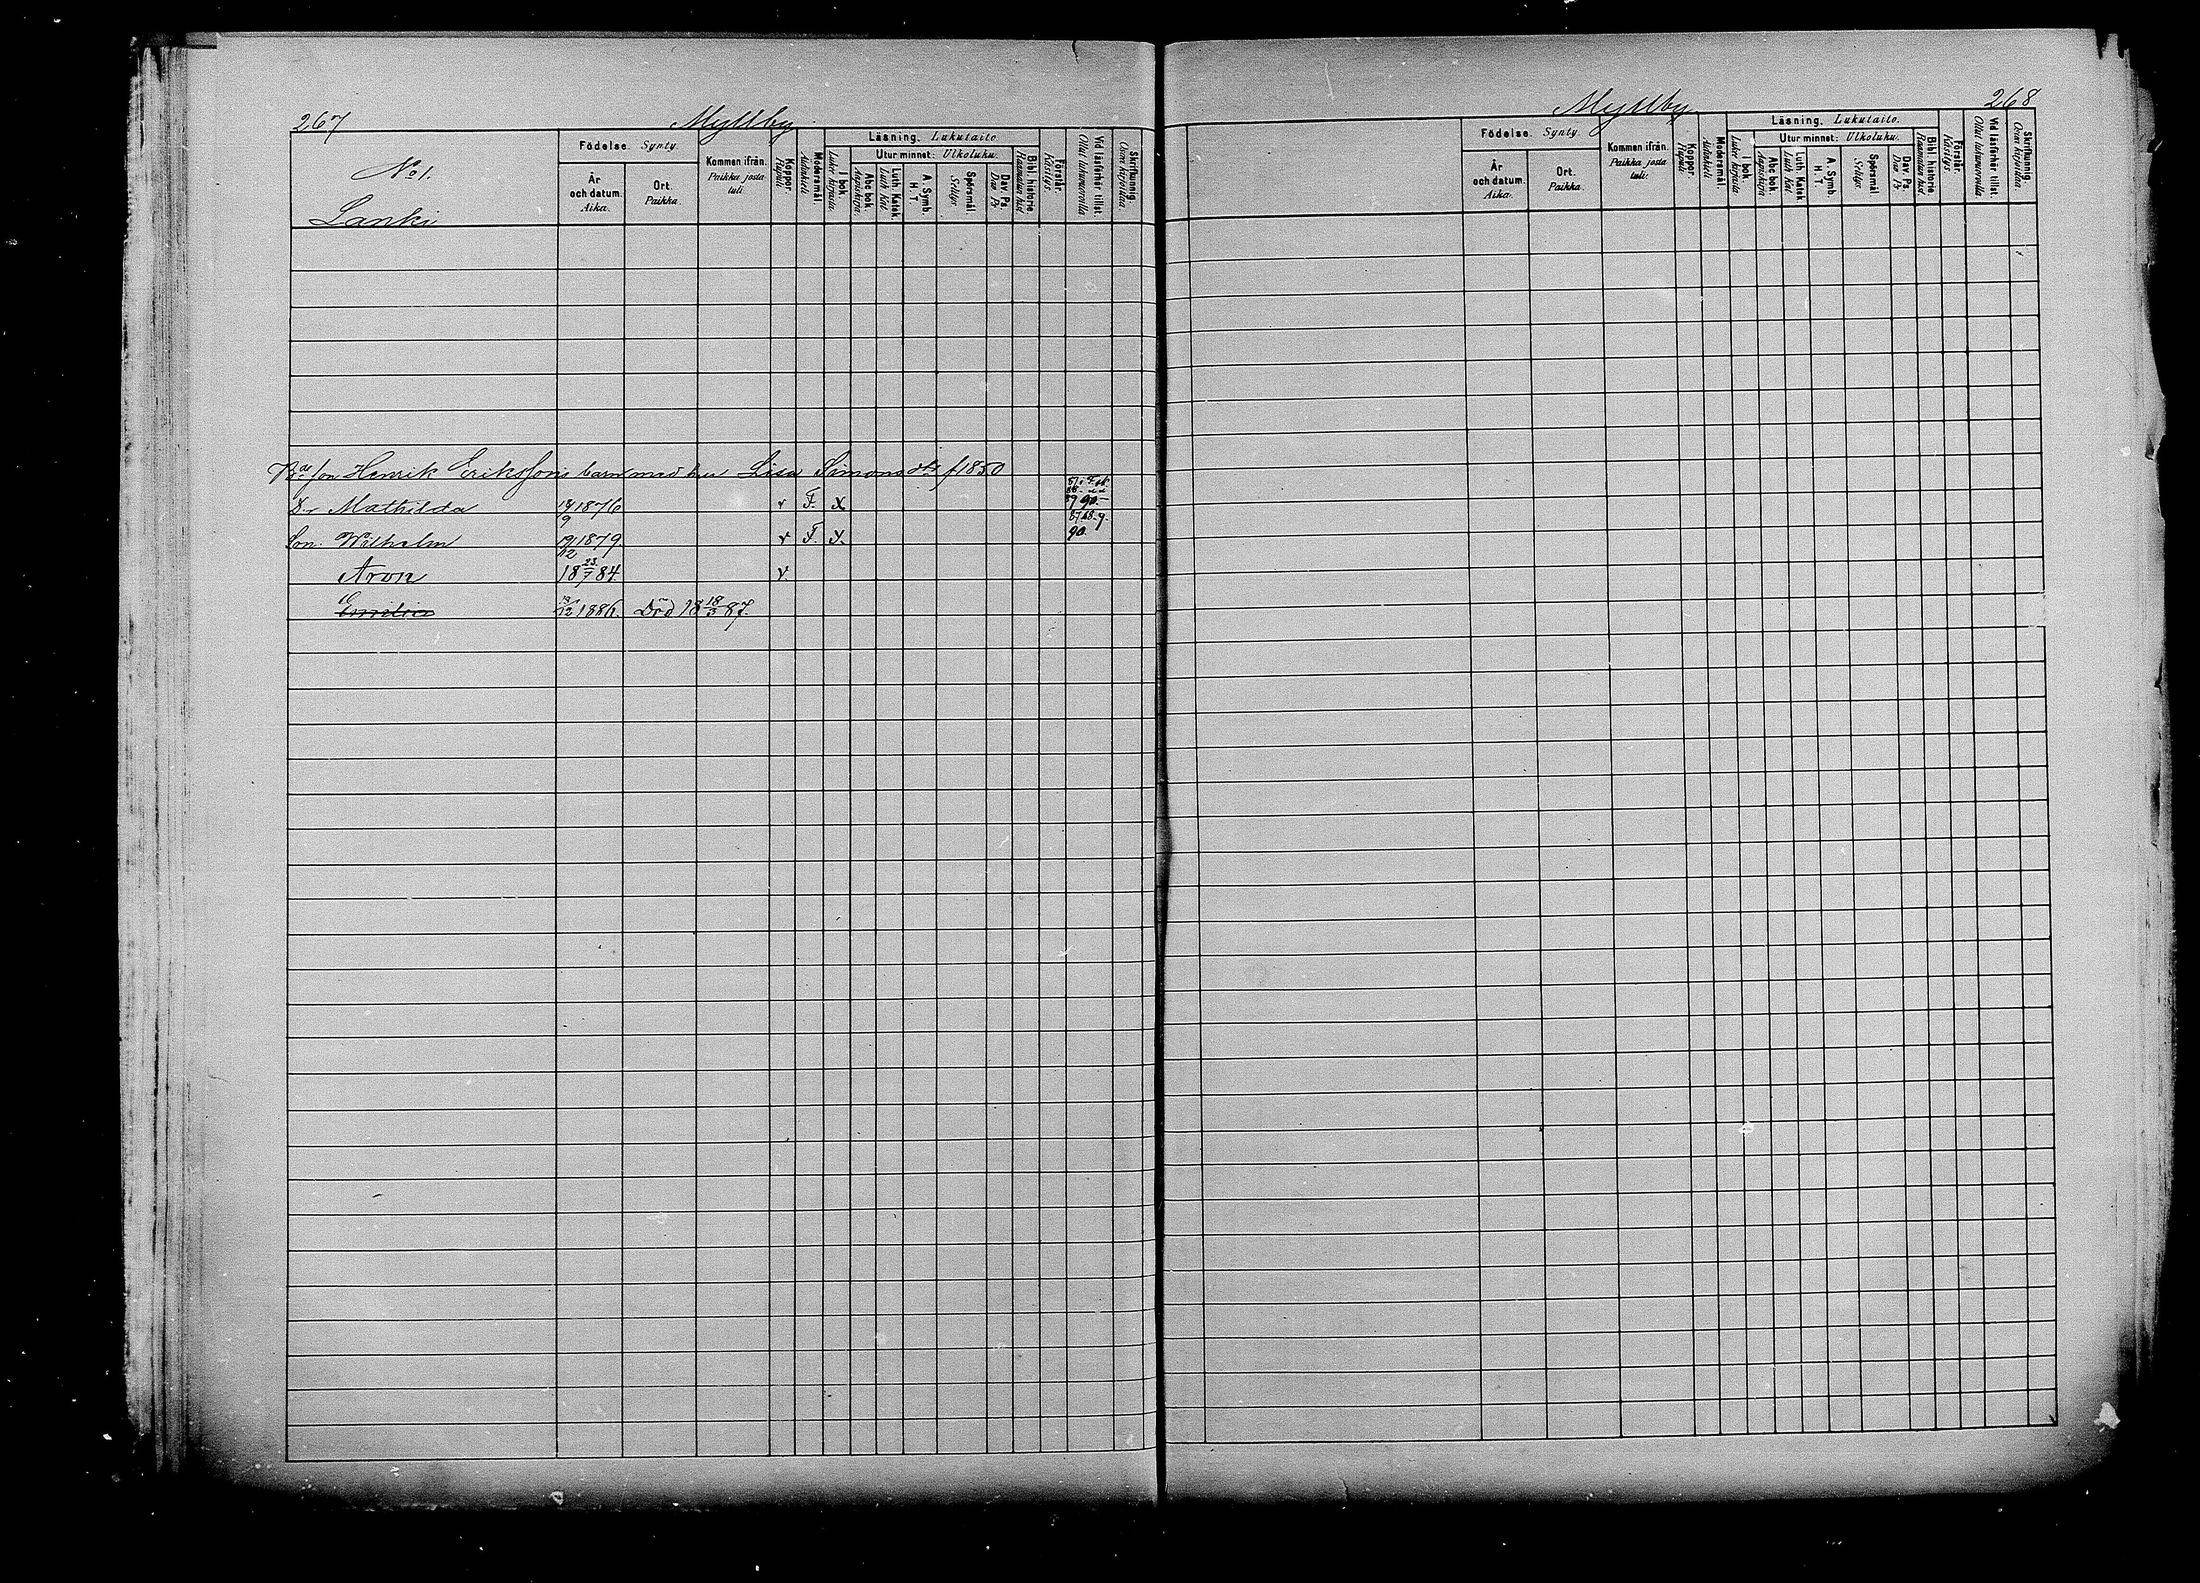 267 Myllby
No 1.
Lanki
Födelse. Synty.
År och datum. Aika.
Ort. Paikka.
Kommen ifrån. Paikka josta tuli.
Koppor. Rupuli
Modersmål. Äidinkieli
Läsning. Lukutaito
I bok. Lukee kirjasta.
Utur minnet: Ulkoluku.
Abc bok. Aapiskirja.
Luth. Katek. Luth Kat.
A. Symb. H. T.
Spörsmål. Selitys.
Dav. Ps. Dav. Ps
Bibl. historie. Raamatun hist.
Förstår. Käsitys.
Vid läsförhör tillst. Ollut lukukuvuilla
Skrifkunnig. Osaa kirjoittaa
Bde son Henrik Erikssons barn med hu Lisa Simonsdtr f 1850
Dr Mathilda 14/9 1876 v F. X 87. F. ok. 88. 89 90.
Son. Wilhelm 19/12 1879. v F. X. 87 88. 9. 90.
Aron 18 23/7 84 v.
Emilia 13/12 1886. Död 18 18/3 87.
Myllby 268
Födelse. Synty.
År och datum. Aika.
Ort. Paikka.
Kommen ifrån. Paikka josta tuli.
Koppor. Rupuli
Modersmål. Äidinkieli
Läsning. Lukutaito.
I bok. Lukee kirjasta
Utur minnet: Ulkoluku.
Abc bok. Aapiskirja
Luth. Katek. Luth Kat.
A. Symb. H. T.
Spörsmål. Selitys.
Dav. Ps. Dav. Ps
Bibl. historia. Raamatun hist.
Förstår. Käsitys.
Vid läsförhör tillst.
Skrifkunnig. Osaa kirjoittaa